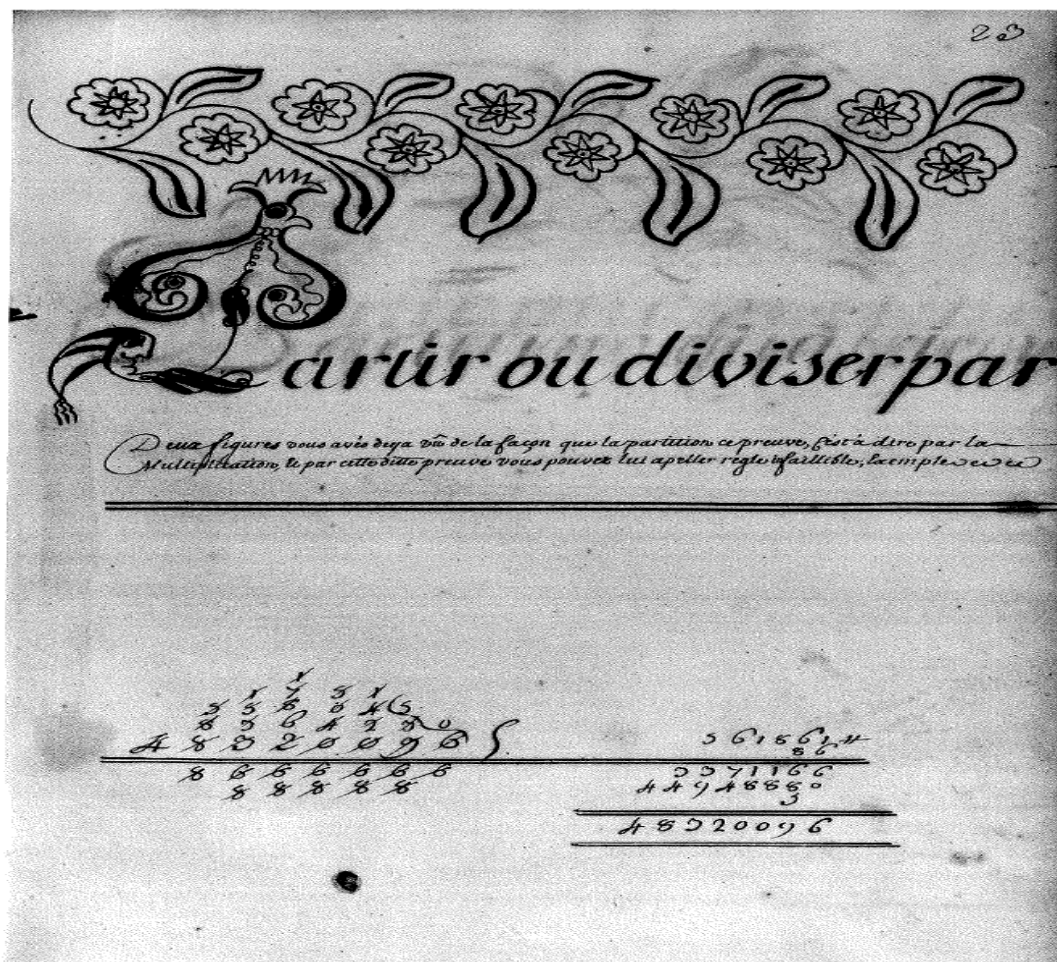 23
Partir ou diviser par
Deux figures vous avés deja vû de la façon que la partition ce preuve, c'est à dire par la
Multiplication, & par cette ditte preuve vous pouvez lui apeller regle infaillible, Exemple
1
1 7 5 1
5 5 8 0 4 5
8 3 6 4 2 3 0
4 8 3 2 0 0 9 6
8 6 6 6 6 6 6
8 8 8 8 8
561861
86
3371166
44948880
5
48320096